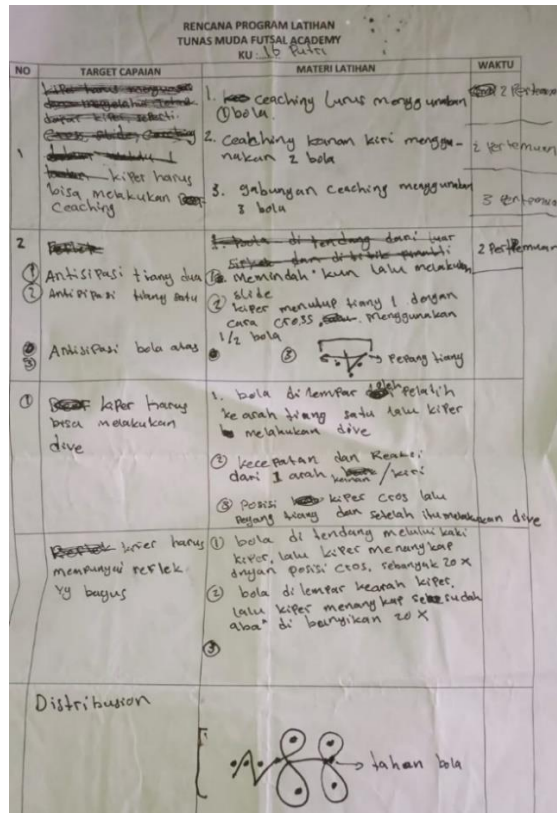 RENCANA PROGRAM LATIHAN
TUNAS MUDA FUTSAL ACADEMY
KU : 16 Putri
NO
TARGET CAPAIAN
MATERI LATIHAN
WAKTU
1
kiper harus
bisa melakukan
Ceaching
1. Ceaching lurus menggunakan
① bola.
2. Ceahching kanan kiri menggu-
nakan 2 bola
3. gabungan ceaching menggunakan
3 bola
2 Pertemuan
2 pertemuan
3 Pertemuan
2
① Antisipasi tiang dua
② Antisipasi tiang satu
③ Antisipasi bola atas
① memindah² kun lalu melakukan
slide
② kiper menutup tiang 1 dengan
cara cross, menggunakan
1/2 bola
③ → Pegang tiang
2 Pertemuan
① kiper harus
bisa melakukan
dive
1. bola di lempar oleh pelatih
ke arah tiang satu lalu kiper
melakukan dive
② kecepatan dan Reaksi
dari 1 arah kanan/kiri
③ Posisi kiper cros lalu
pegang tiang dan setelah itu melakukan dive
kiper harus
mempunyai reflek
yg bagus
① bola di tendang melului kaki
kiper, lalu kiper menangkap
dngan posisi cros, sebanyak 20 X
② bola di lempar kearah kiper,
lalu kiper menangkap sesudah
aba² di bunyikan 20 X
③
Distribusion
→ tahan bola